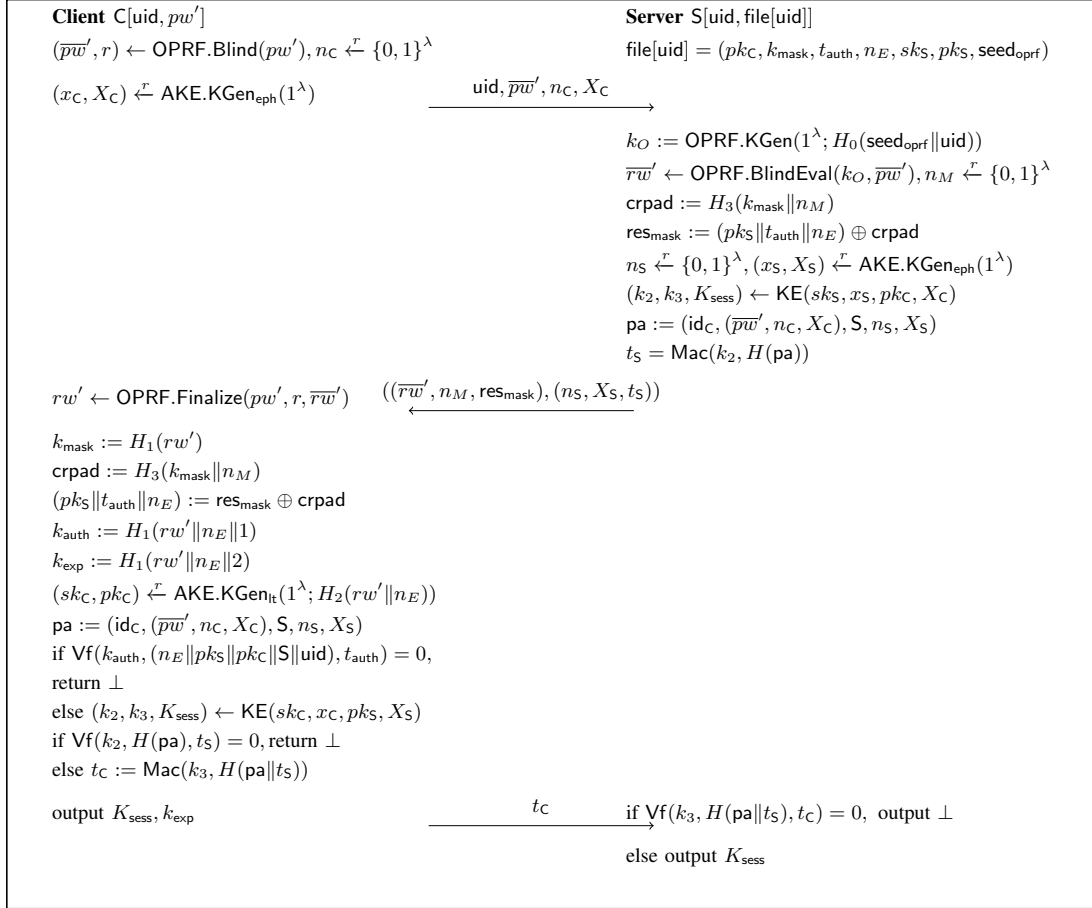 Client C[uid, pw′] Server S[uid, file[uid]]
(p̅w̅′, r) ← OPRF.Blind(pw′), n_C ←ʳ {0, 1}^λ file[uid] = (pk_C, k_mask, t_auth, n_E, sk_S, pk_S, seed_oprf)
(x_C, X_C) ←ʳ AKE.KGen_eph(1^λ) uid, p̅w̅′, n_C, X_C
k_O := OPRF.KGen(1^λ; H_0(seed_oprf‖uid))
r̅w̅′ ← OPRF.BlindEval(k_O, p̅w̅′), n_M ←ʳ {0, 1}^λ
crpad := H_3(k_mask‖n_M)
res_mask := (pk_S‖t_auth‖n_E) ⊕ crpad
n_S ←ʳ {0, 1}^λ, (x_S, X_S) ←ʳ AKE.KGen_eph(1^λ)
(k_2, k_3, K_sess) ← KE(sk_S, x_S, pk_C, X_C)
pa := (id_C, (p̅w̅′, n_C, X_C), S, n_S, X_S)
t_S = Mac(k_2, H(pa))
rw′ ← OPRF.Finalize(pw′, r, r̅w̅′) ((r̅w̅′, n_M, res_mask), (n_S, X_S, t_S))
k_mask := H_1(rw′)
crpad := H_3(k_mask‖n_M)
(pk_S‖t_auth‖n_E) := res_mask ⊕ crpad
k_auth := H_1(rw′‖n_E‖1)
k_exp := H_1(rw′‖n_E‖2)
(sk_C, pk_C) ←ʳ AKE.KGen_lt(1^λ; H_2(rw′‖n_E))
pa := (id_C, (p̅w̅′, n_C, X_C), S, n_S, X_S)
if Vf(k_auth, (n_E‖pk_S‖pk_C‖S‖uid), t_auth) = 0,
return ⊥
else (k_2, k_3, K_sess) ← KE(sk_C, x_C, pk_S, X_S)
if Vf(k_2, H(pa), t_S) = 0, return ⊥
else t_C := Mac(k_3, H(pa‖t_S))
output K_sess, k_exp t_C if Vf(k_3, H(pa‖t_S), t_C) = 0, output ⊥
else output K_sess